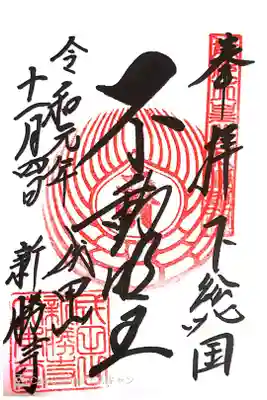 奉拝 下総国
不動明王
成田山
新勝寺
令和元年
十一月四日